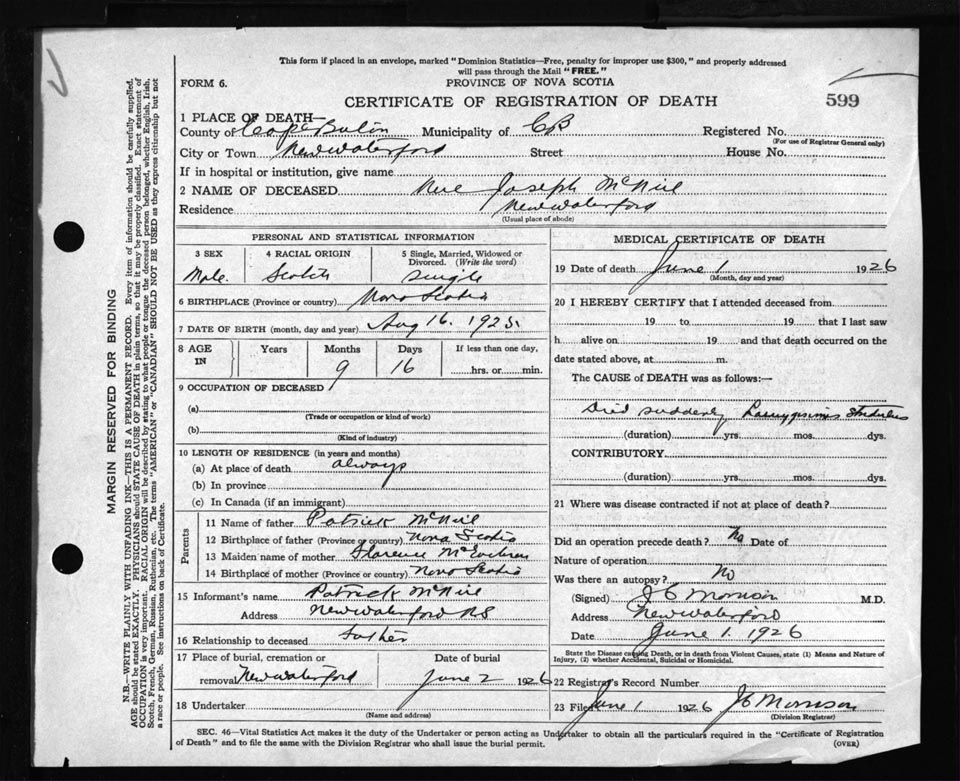 This form if placed in an envelope, marked "Dominion Statistics—Free, penalty for improper use $300," and properly addressed
will pass through the Mail "FREE."
FORM 6.
PROVINCE OF NOVA SCOTIA
CERTIFICATE OF REGISTRATION OF DEATH
599
1 PLACE OF DEATH—
County of Cape Breton Municipality of CB Registered No.
(For use of Registrar General only)
City or Town New Waterford Street House No.
If in hospital or institution, give name
2 NAME OF DECEASED Joseph McNeil
Residence New Waterford
(Usual place of abode)
PERSONAL AND STATISTICAL INFORMATION
3 SEX 4 RACIAL ORIGIN 5 Single, Married, Widowed or
Divorced. (Write the word)
Male Scotch single
6 BIRTHPLACE (Province or country) Nova Scotia
7 DATE OF BIRTH (month, day and year) Aug 16. 1925.
8 AGE
IN
Years Months Days If less than one day,
9 16 hrs. or min.
9 OCCUPATION OF DECEASED
(a)
(Trade or occupation or kind of work)
(b)
(Kind of industry)
10 LENGTH OF RESIDENCE (in years and months)
(a) At place of death always
(b) In province
(c) In Canada (if an immigrant)
Parents
11 Name of father Patrick McNeil
12 Birthplace of father (Province or country) Nova Scotia
13 Maiden name of mother Florence
14 Birthplace of mother (Province or country) Nova Scotia
15 Informant's name Patrick McNeil
Address New Waterford NS
16 Relationship to deceased father
17 Place of burial, cremation or Date of burial
removal New Waterford June 2 1926
18 Undertaker
(Name and address)
MEDICAL CERTIFICATE OF DEATH
19 Date of death June 1 1926
(Month, day and year)
20 I HEREBY CERTIFY that I attended deceased from
19 to 19 that I last saw
h alive on 19 and that death occurred on the
date stated above, at m.
The CAUSE of DEATH was as follows:—
Died suddenly Laryngismus Stridulus
(duration) yrs. mos. dys.
CONTRIBUTORY
(duration) yrs. mos. dys.
21 Where was disease contracted if not at place of death?
Did an operation precede death? No Date of
Nature of operation
Was there an autopsy? No
(Signed) Morrison M.D.
Address New Waterford
Date June 1. 1926
State the Disease causing Death, or in death from Violent Causes, state (1) Means and Nature of
Injury, (2) whether Accidental, Suicidal or Homicidal.
22 Registrar's Record Number
23 Filed June 1 1926 Morrison
(Division Registrar)
SEC. 46—Vital Statistics Act makes it the duty of the Undertaker or person acting as Undertaker to obtain all the particulars required in the "Certificate of Registration
of Death" and to file the same with the Division Registrar who shall issue the burial permit.
(OVER)
MARGIN RESERVED FOR BINDING
N.B.—WRITE PLAINLY WITH UNFADING INK—THIS IS A PERMANENT RECORD. Every item of information should be carefully supplied.
AGE should be stated EXACTLY. PHYSICIANS should STATE CAUSE OF DEATH in plain terms, so that it may be properly classified. Exact statement of
OCCUPATION is very important. RACIAL ORIGIN will be described by stating to what people or tongue the deceased person belonged, whether English, Irish,
Scotch, French, German, Russian, Ruthenian, etc. The terms "AMERICAN" or "CANADIAN" SHOULD NOT BE USED as they express citizenship but not
a race or people. See instructions on back of Certificate.